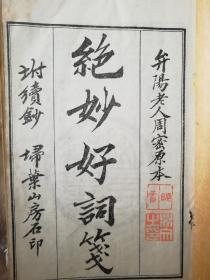 弁陽老人周密原本
絶妙好詞箋
坿續鈔　埽葉山房石印